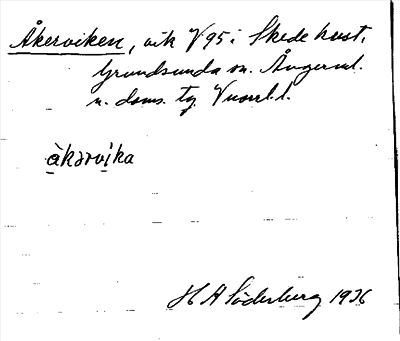 Åkerviken, vik V 95 i Skede hust.
Grundsunda sn. Ångerml.
n. doms. tg Vnorrl. l.
àkərvika
H A Söderberg 1936